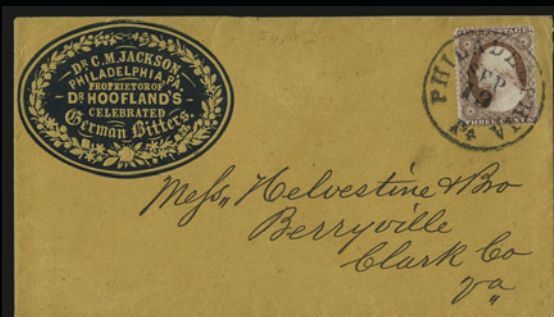 Dr. C. M. JACKSON,
PHILADELPHIA, PA.
PROPRIETOR OF
DR HOOFLAND'S
CELEBRATED
German Bitters.
PHILADELPHIA
SEP
19
Pa
THREE CENTS
Mess,, Helvestine & Bro
Berryville
Clark Co
Va